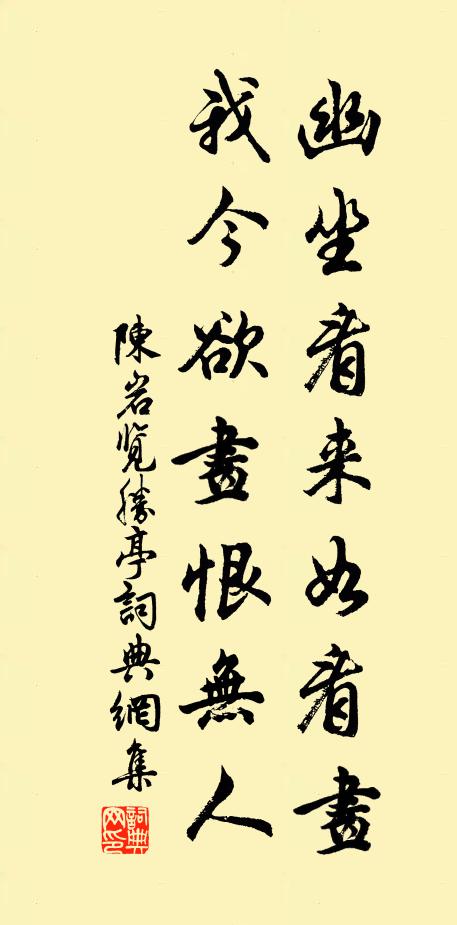 幽坐看来如看畫
我今欲畫恨無人
陳岩览勝亭詞典網集
詞典网印